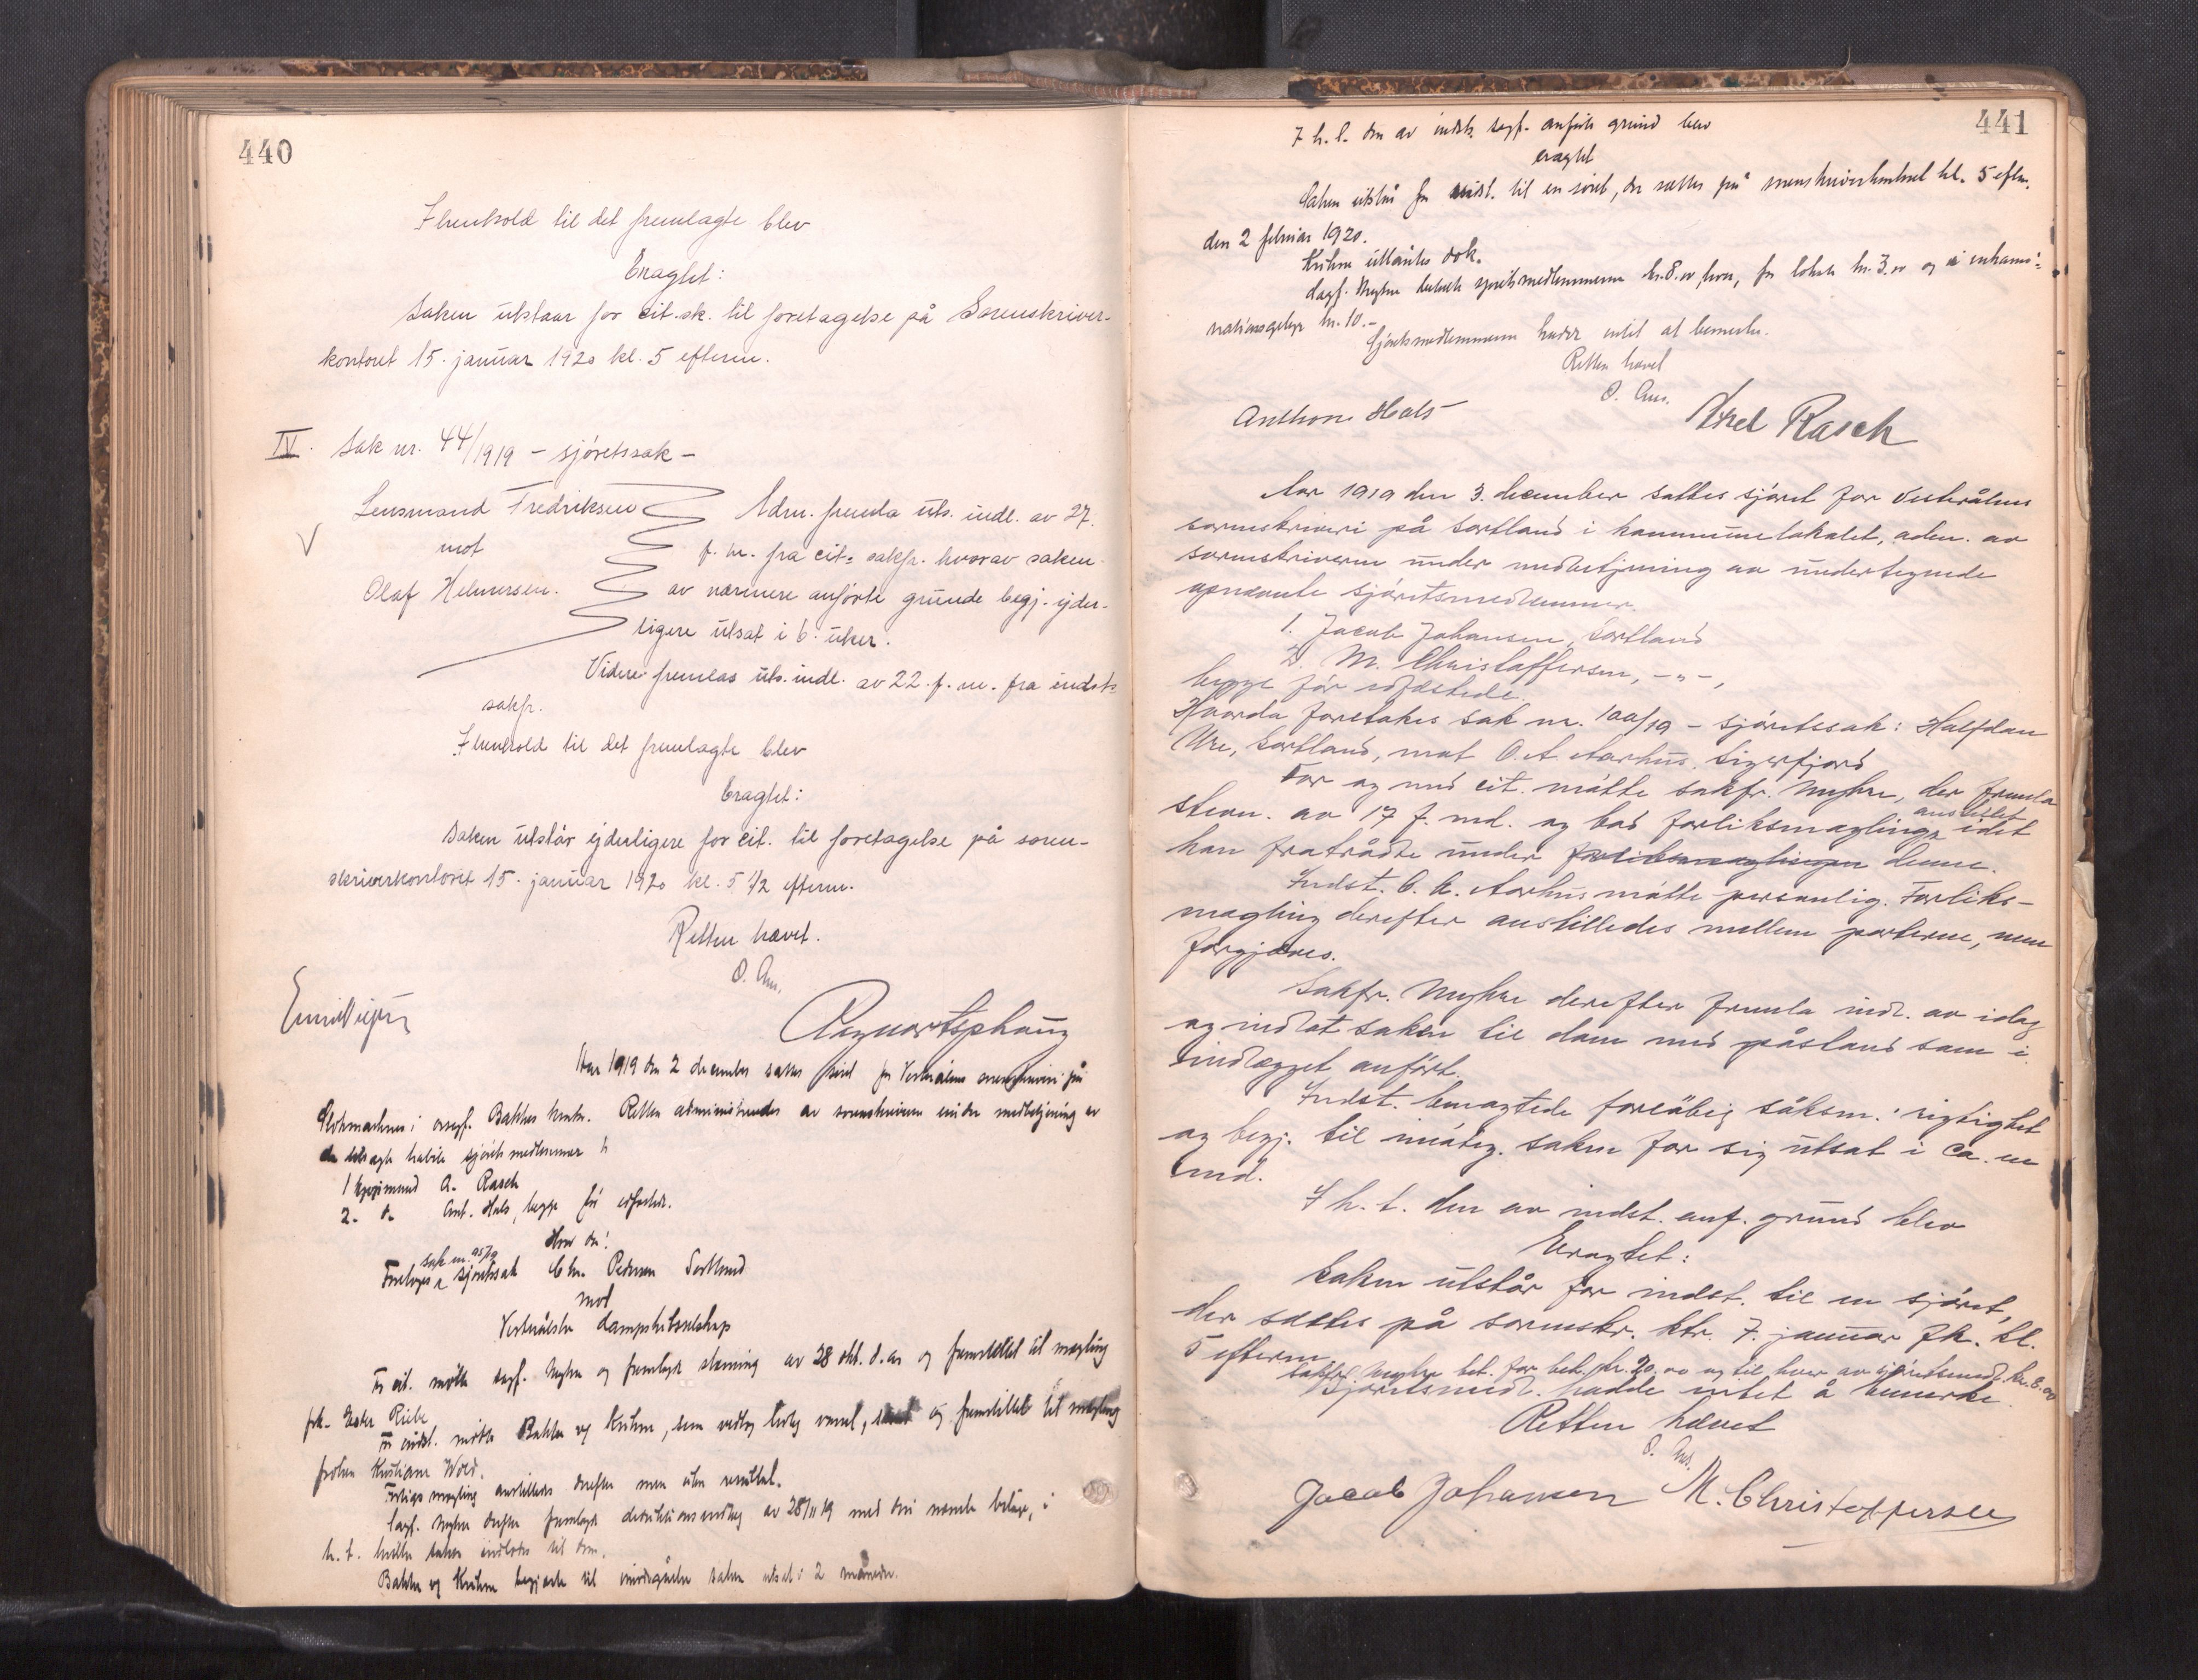 440
I henhold til det fremlagte blev
Eragtet:
Saken utstaar for cit. sk. til foretagelse på Sorenskriver-
kontoret 15. januar 1920 kl. 5 efterm.
IV. Sak nr. 44/1919 – sjöretssak –
Lensmand Fredriksen
mot
Olaf Helmersen.
V
Adm. fremla uts. indl. av 27.
f. m. fra cit. sakfr. hvorav saken
av nærmere anförte grunde begj. yder-
ligere utsat i 6 uker.
Videre fremlas uts. indl. av 22. f. m. fra indst.
sakfr.
I henhold til det fremlagte blev
Eragtet:
Saken utstår yderligere for cit. til foretagelse på soren-
skriverkontoret 15. januar 1920 kl. 5 1/2 efterm.
Retten hævet.
Aar 1919 den 2 december sattes sjöret for Vesteraalens sorenskriveri på
Stokmarknes i ovrsgf. Bakkes kontor. Retten administrertes av sorenskriveren under medbetjening av
habile sjöretsmedlemmer
1 A. Rasch
2. Ant. Hals, begge för edfæstede.
Hvor da:
sak nr. 95/19
Foretoges sjöretssak Chr. Pedersen Sortland
mod
Vesteraalens Dampskibsselskap
For cit. mötte sagf. Myhre og fremlagde stevning av 28 okt. d. as. og fremstillet til mægling
frk. Ester Riebe
For indst. mötte Bakke og Krihne, som vedtog lovlig varsel, samt og fremstillet til mægling
fröken Kristiane Wold.
Forligsmægling anstilledes derefter men uten resultat.
Sagf. Myhre derefter fremlagde deduktionsindlæg av 28/11 19 med deri nævnte bilage, i
h. t. hvilke saken indlodes til dom.
Bakke og Krihne begjærte til imötegåelse saken utsat i 2 måneder.
441
I h. t. den av indst. sagf. anförte grund blev
eragtet
Saken utstår for indst. til en sjöret, der sættes på sorenskriverkontoret kl. 5 eftm.
den 2 februar 1920.
Krihne utlåntes dok.
Sagf. Myhre betalte sjöretsmedlemmerne kr. 8.00 hver, for lokale kr. 3.00 og i inkami-
nationsgebyr kr. 10.-
Sjöretsmedlemmerne hadde intet at bemerke.
Retten hævet
Anthon Hals Axel Rasch
Aar 1919 den 3. december sattes sjöret for Vesterålens
sorenskriveri på Sortland i kommunelokalet, adm. av
sorenskriveren under medbetjening av undertegnede
opnævnte sjöretsmedlemmer.
1. Jacob Johansen, Sortland
2. M. Christoffersen, – " –,
begge för edfæstede.
Hvorda foretokes sak nr. 100/19 – sjöretssak: Halfdan
Ure, Sortland, mot O. A. Aarhus. Sigerfjord
For og med cit. mötte sakfr. Myhre, der fremla
stevn. av 17 f. md. og bad forliksmægling anstillet idet
han fratrådte under forliksmæglingen denne.
Indst. O. A. Aarhus mötte personlig. Forliks-
mægling derefter anstilledes mellem parterne, men
forgjæves.
Sakfr. Myhre derefter fremla indl. av idag
og indlot saken til dom med påstand som i
indlægget anfört.
Indst. benægtede foreløbig söksm.' rigtighet
og begj. til imöteg. saken for sig utsat i ca. en
md.
I h. t. den av indst. anf. grund blev
Eragtet:
Saken utstår for indst. til en sjöret,
der sættes på sorenskr. ktr. 7. januar fk. kl.
5 efterm.
Sakfr. Myhre bet. for beh. kr. 20.00 og til hver av sjöretsmedl. kr. 8.00
Sjöretsmedl. hadde intet å bemerke.
Retten hævet
Jacob Johansen M. Christoffersen